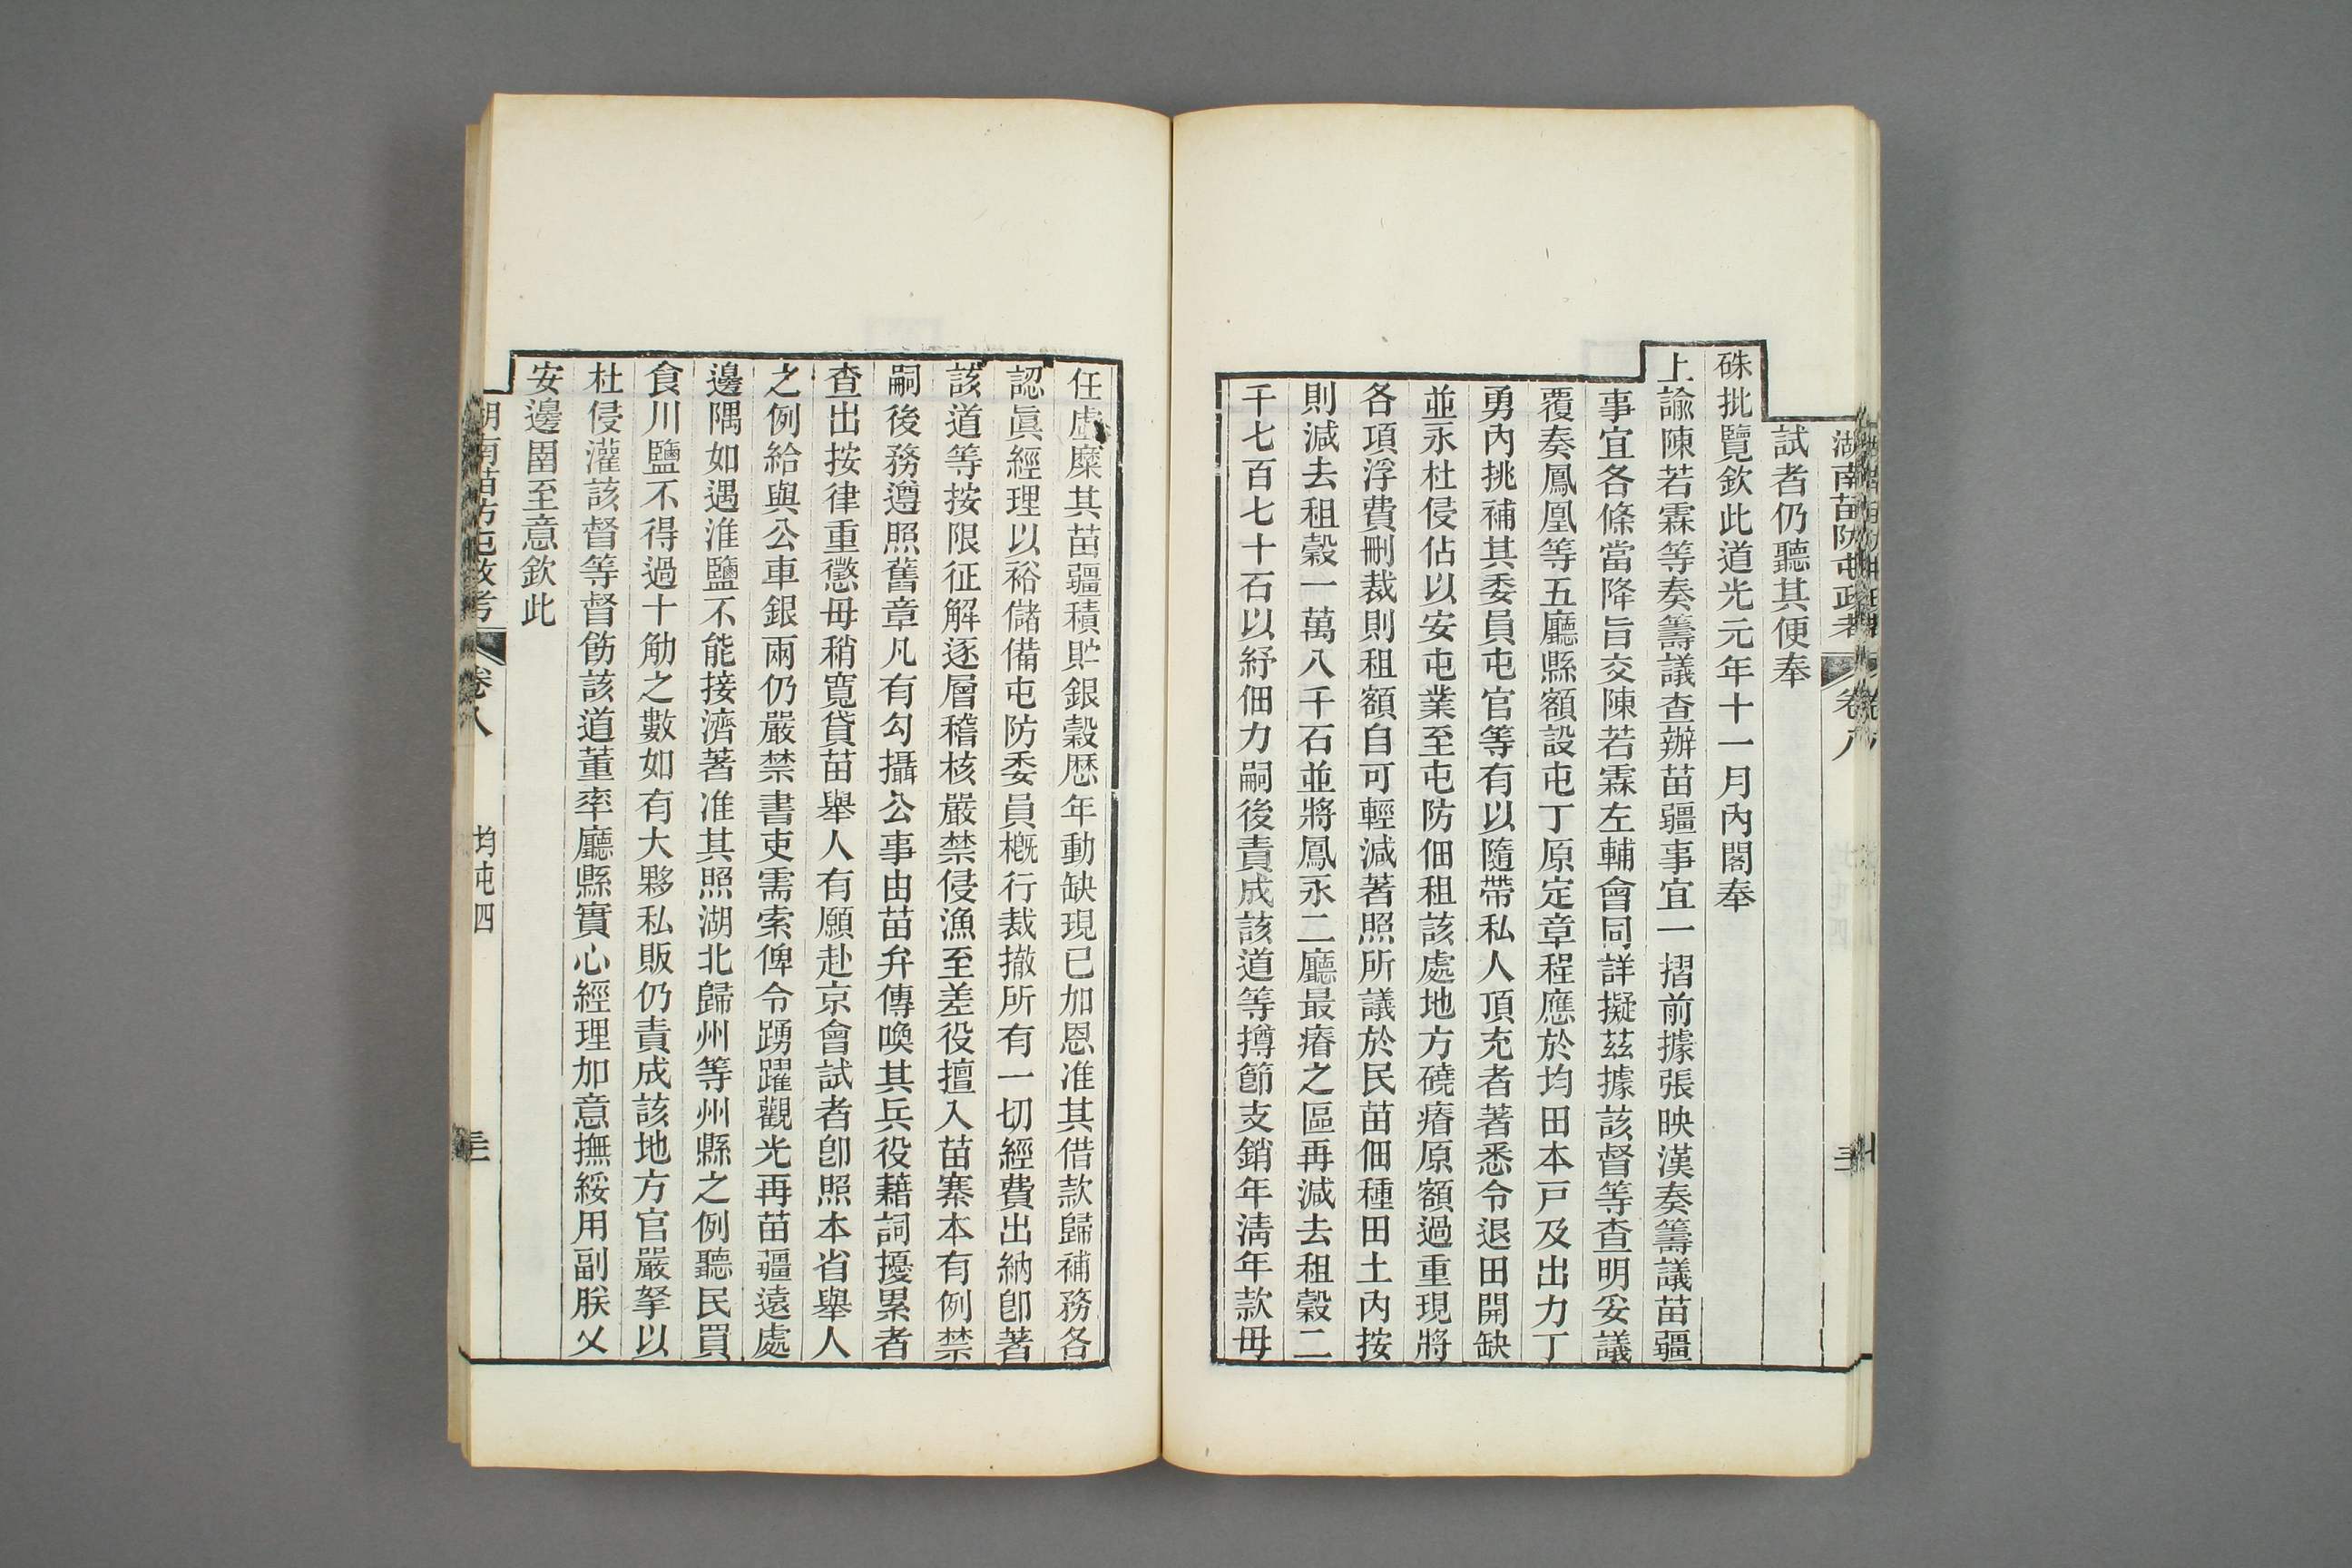 湖南苗防屯政考 卷八
試者仍聽其便奉
硃批覽欽此道光元年十一月內閣奉
上諭陳若霖等奏籌議查辦苗疆事宜一摺前據張映漢奏籌議苗疆
事宜各條當降旨交陳若霖左輔會同詳擬茲據該督等查明妥議
覆奏鳳凰等五廳縣額設屯丁原定章程應於均田本戸及出力丁
勇內挑補其委員屯官等有以隨帶私人頂充者著悉令退田開缺
並永杜侵佔以安屯業至屯防佃租該處地方磽瘠原額過重現將
各項浮費刪裁則租額自可輕減著照所議於民苗佃種田土內按
則減去租穀一萬八千石並將鳳永二廳最瘠之區再減去租穀二
千七百七十石以紓佃力嗣後責成該道等撙節支銷年淸年款毋
任虛糜其苗疆積貯銀穀歷年動缺現已加恩准其借款歸補務各
認眞經理以裕儲備屯防委員槪行裁撤所有一切經費出納卽著
該道等按限征解逐層稽核嚴禁侵漁至差役擅入苗寨本有例禁
嗣後務遵照舊章凡有勾攝公事由苗弁傳喚其兵役藉詞擾累者
查出按律重懲毋稍寬貸苗舉人有願赴京會試者卽照本省舉人
之例給與公車銀兩仍嚴禁書吏需索俾令踴躍觀光再苗疆遠處
邊隅如遇淮鹽不能接濟著准其照湖北歸州等州縣之例聽民買
食川鹽不得過十觔之數如有大夥私販仍責成該地方官嚴拏以
杜侵灌該督等督飭該道董率廳縣實心經理加意撫綏用副朕乂
安邊圉至意欽此
湖南苗防屯政考 卷八 均屯四